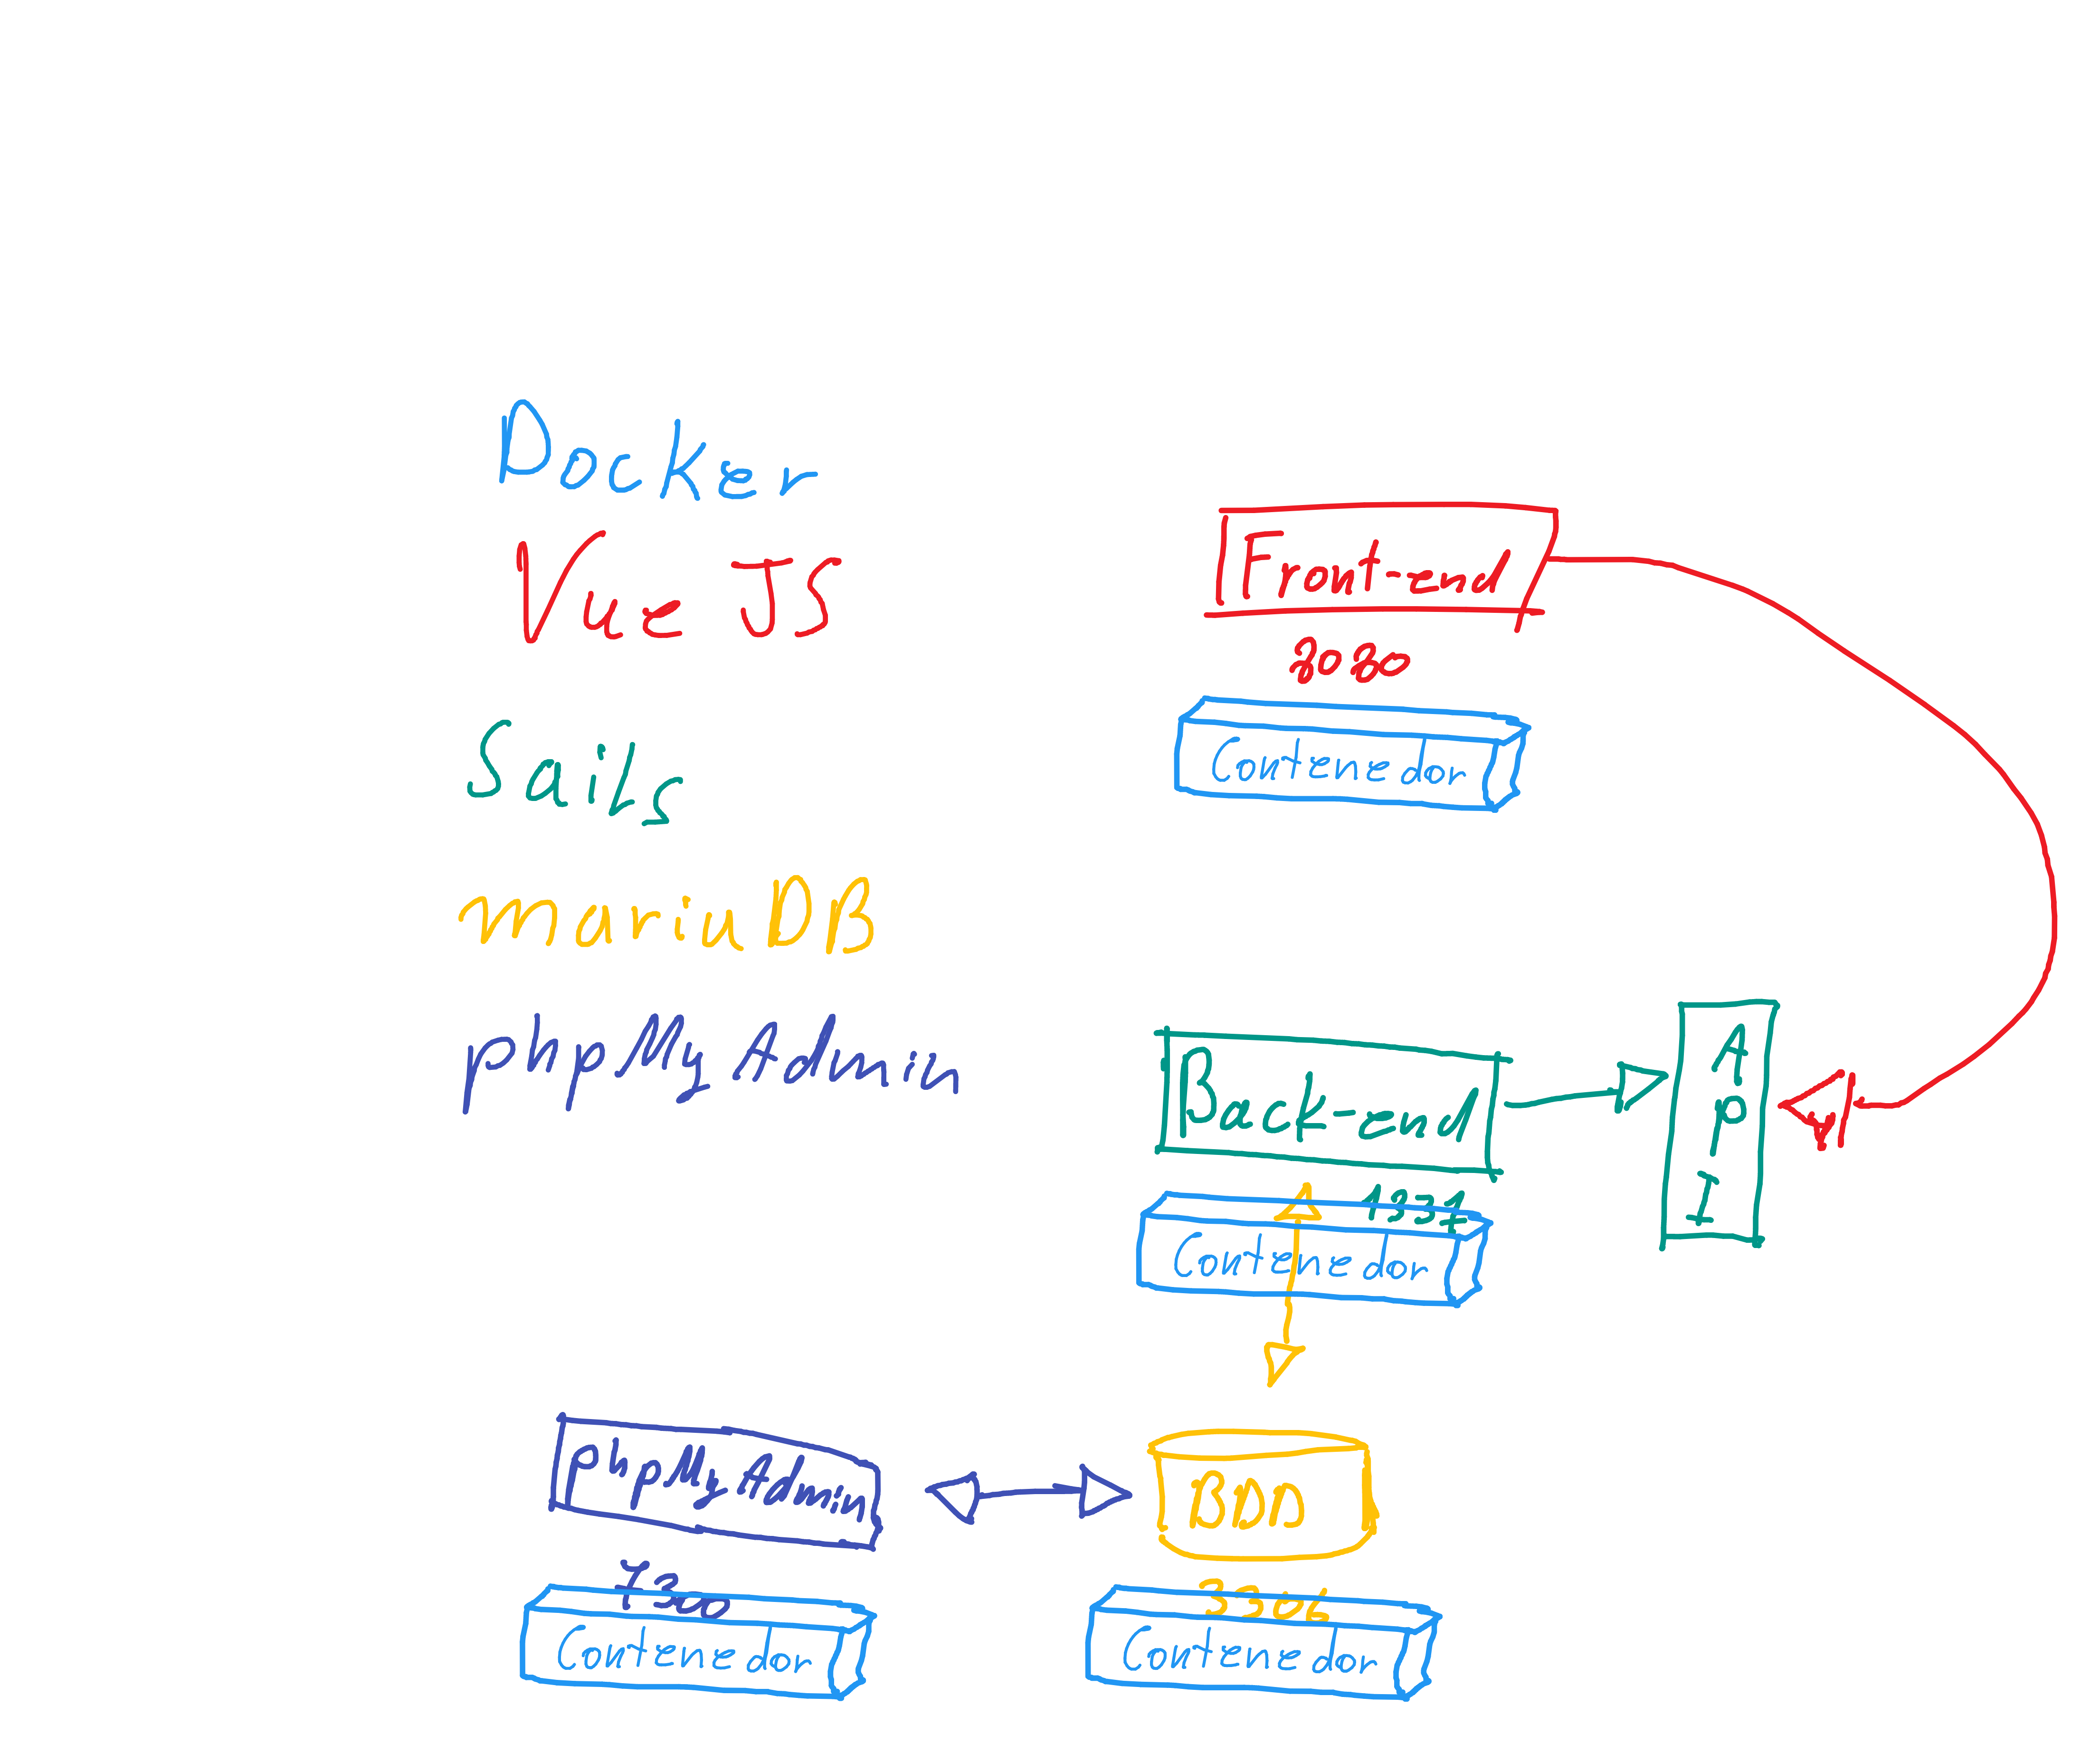 Docker
Vue JS
Sails
mariaDB
phpMyAdmin
Front-end
8080
Contenedor
Back-end
API
1337
Contenedor
PhpMyAdmin
BDD
3306
Contenedor
Contenedor